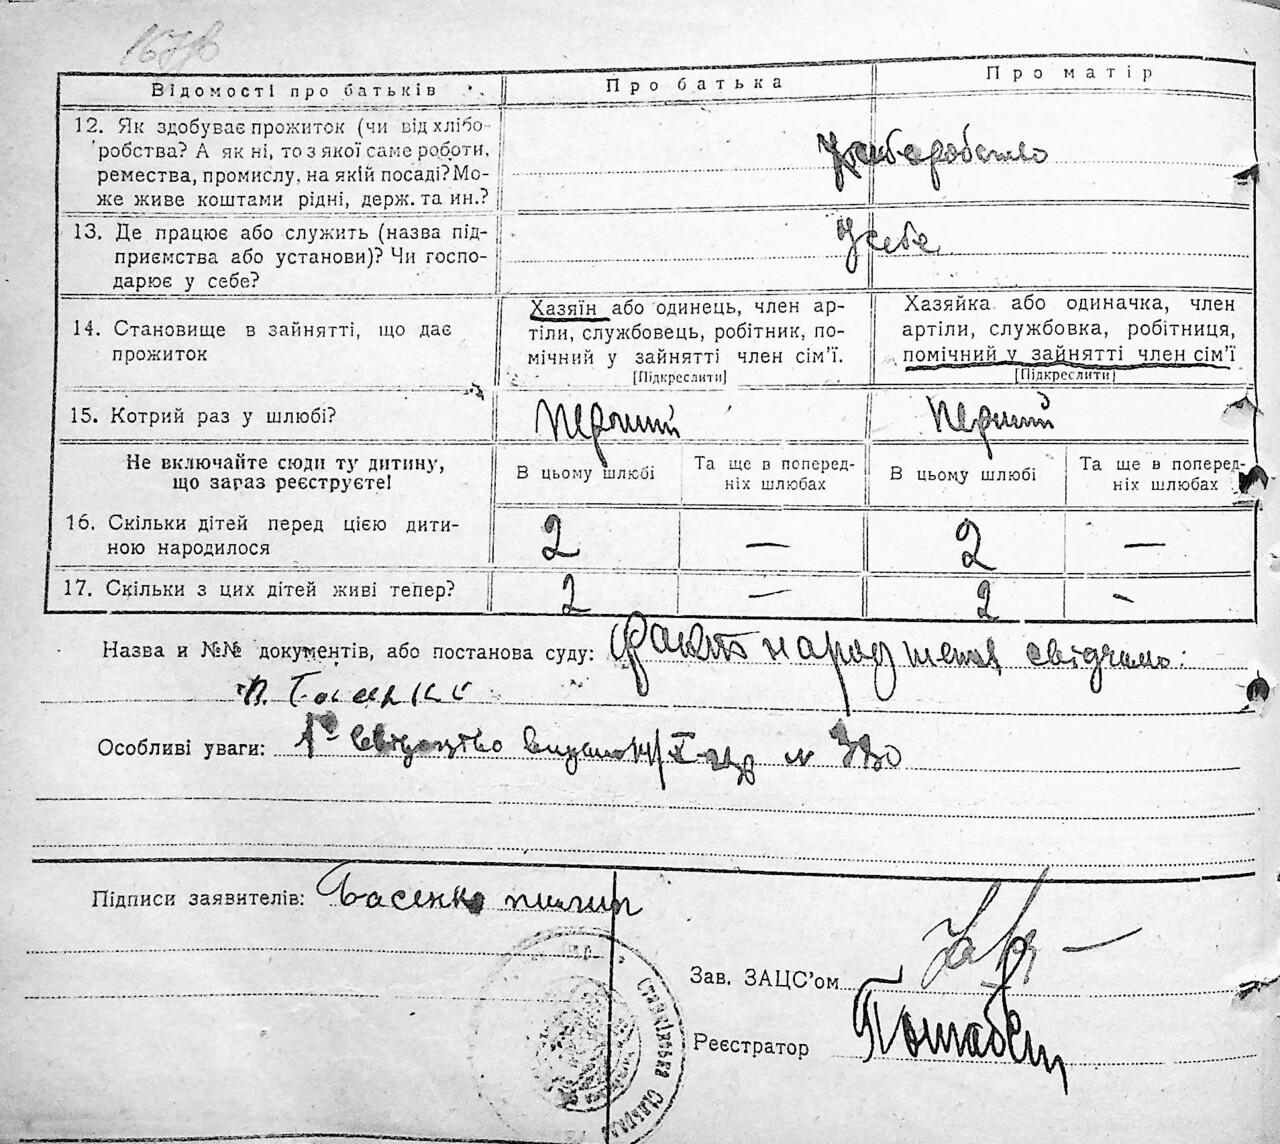 167зв
Відомості про батьків
Про батька
Про матір
12. Як здобуває прожиток (чи від хлібо-
робства? А як ні, то з якої саме роботи,
ремества, промислу, на якій посаді? Мо-
же живе коштами рідні, держ. та ин.?
13. Де працює або служить (назва під-
приємства або установи)? Чи госпо-
дарює у себе?
У себе
14. Становище в зайнятті, що дає
прожиток
Хазяїн або одинець, член ар-
тіли, службовець, робітник, по-
мічний у зайнятті член сім'ї.
[Підкреслити]
Хазяйка або одиначка, член
артіли, службовка, робітниця,
помічний у зайнятті член сім'ї
[Підкреслити]
15. Котрий раз у шлюбі?
перший
перший
Не включайте сюди ту дитину,
що зараз реєструєте!
В цьому шлюбі
Та ще в поперед-
ніх шлюбах
В цьому шлюбі
Та ще в поперед-
ніх шлюбах
16. Скільки дітей перед цією дити-
ною народилося
2
—
2
—
17. Скільки з цих дітей живі тепер?
2
—
2
-
Назва и №№ документів, або постанова суду: факт народження свідчимо:
П. Басенко
Особливі уваги: свідоцтво видано № 330
Підписи заявителів: Басенко Пилип
Зав. ЗАЦС'ом
Реєстратор
Сільрада